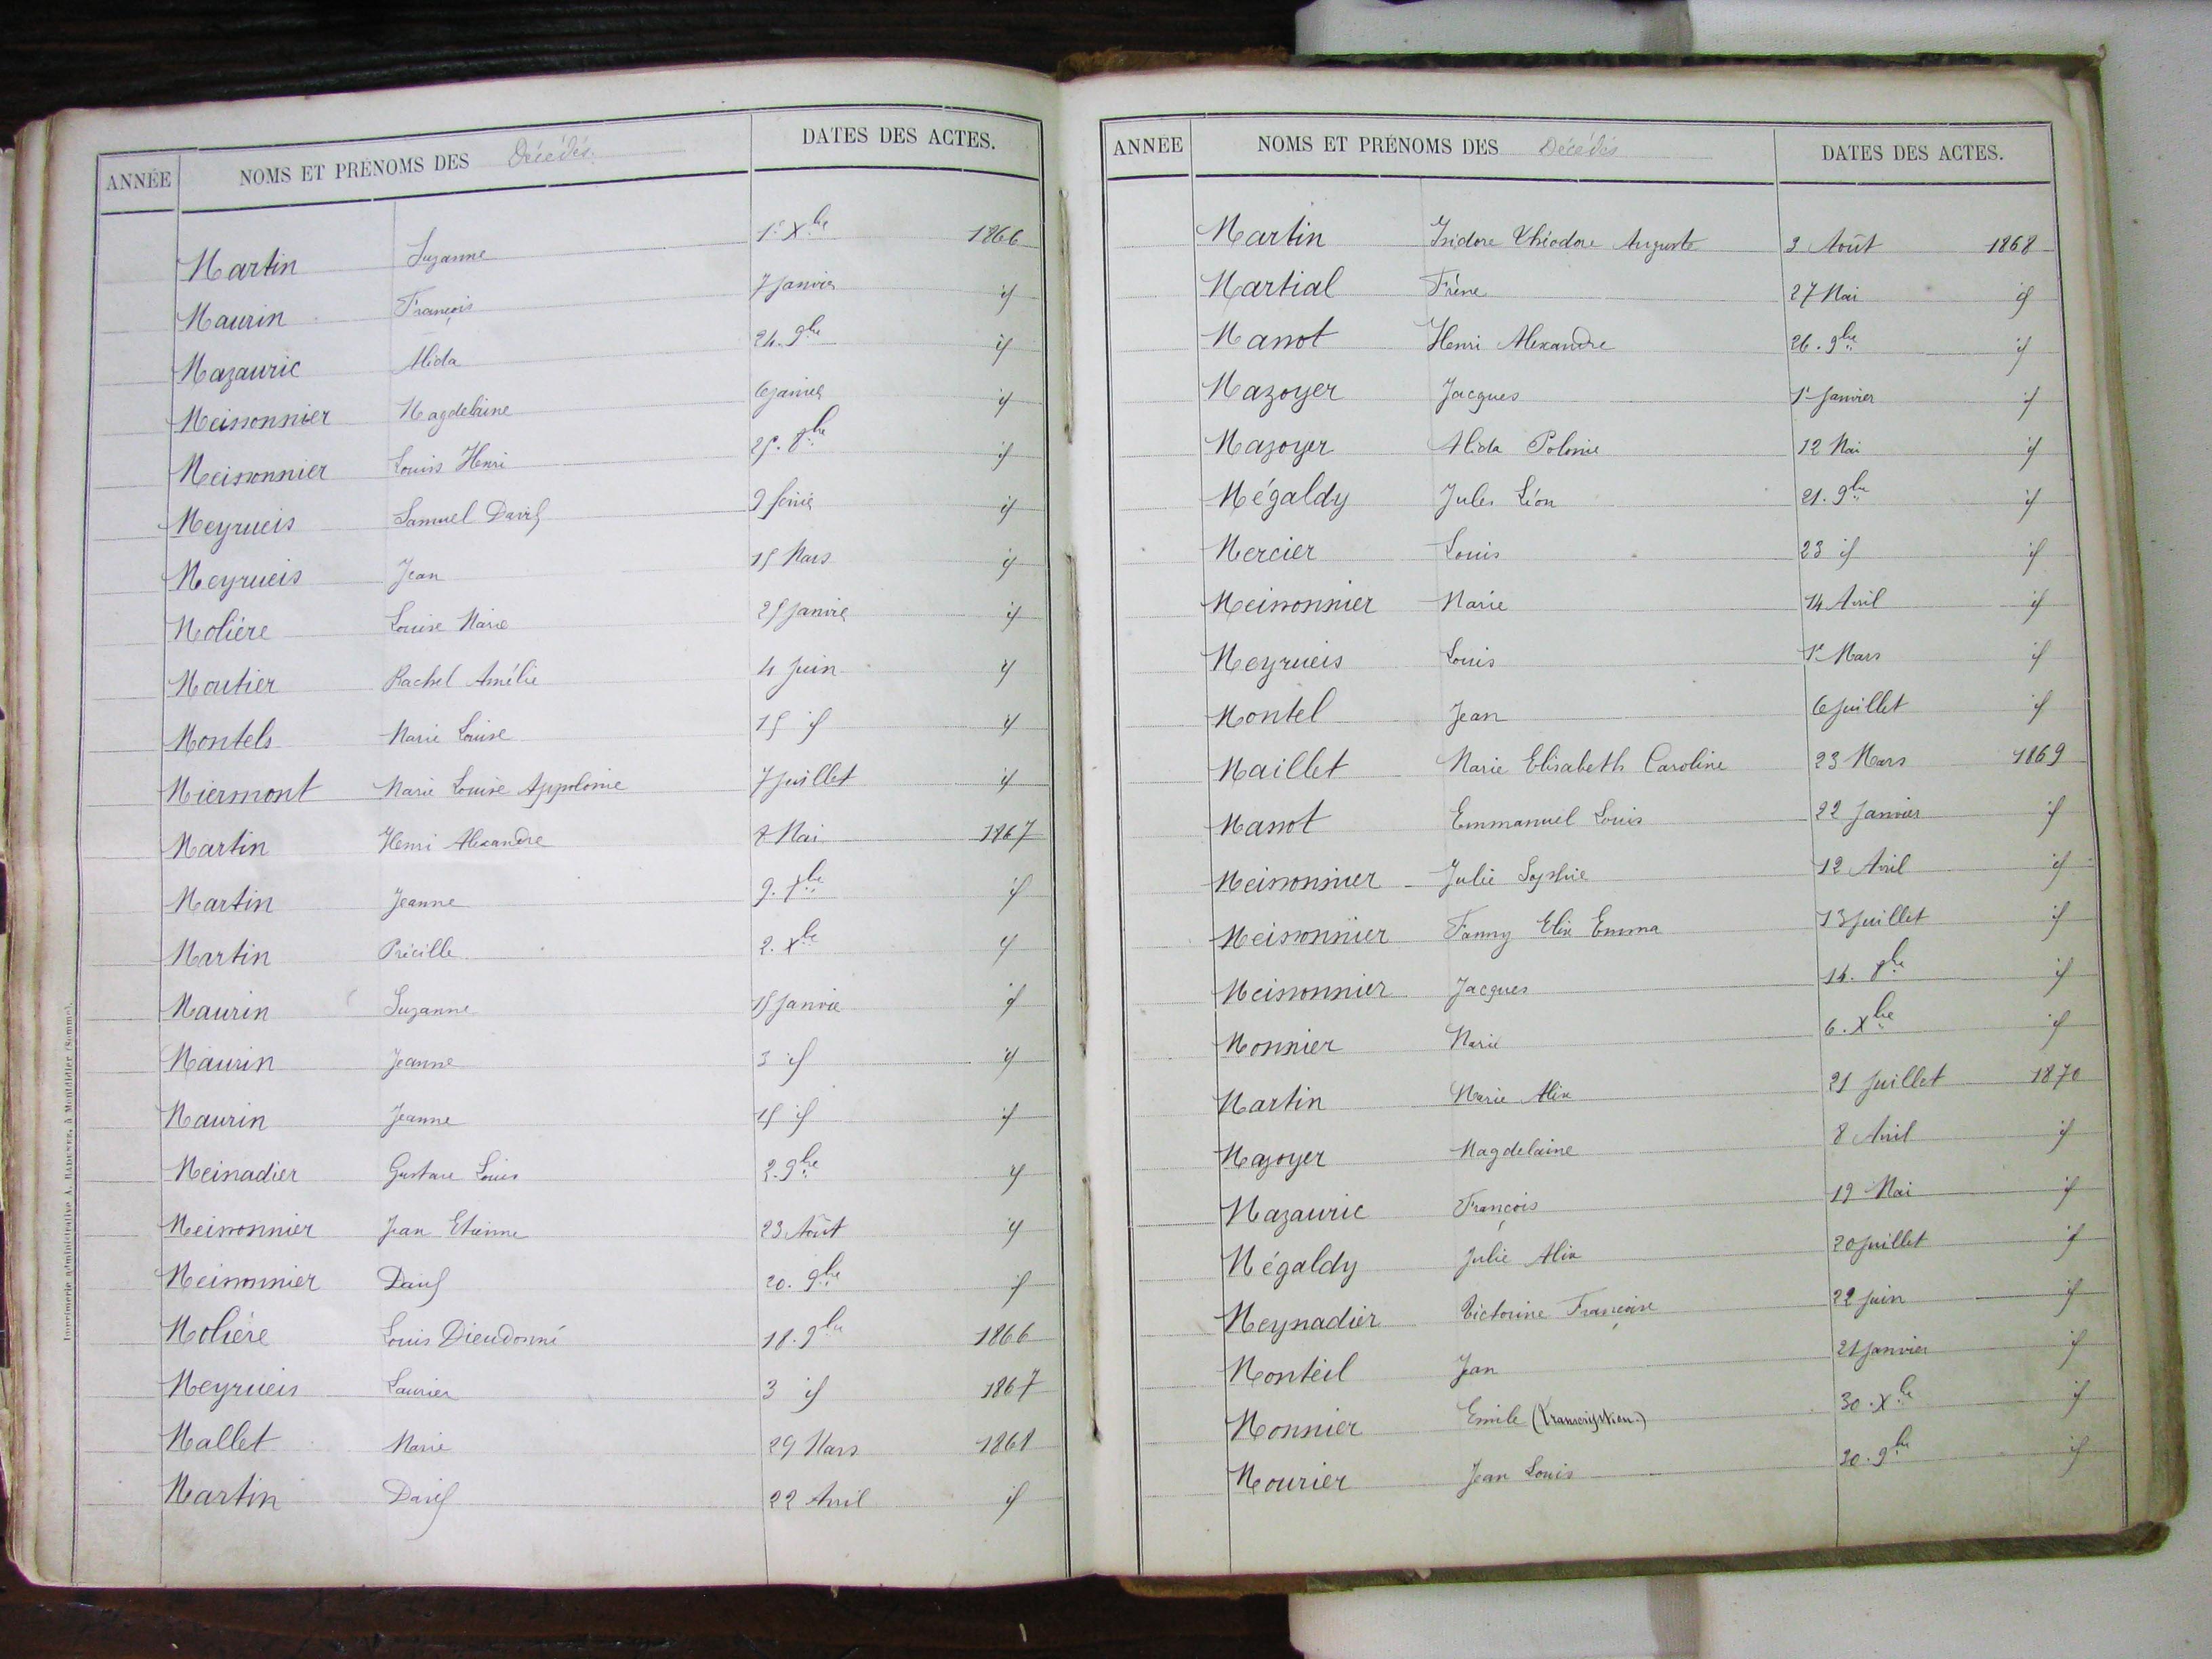 ANNÉE NOMS ET PRÉNOMS DES Décédés. DATES DES ACTES.
Martin Suzanne 1er Xbre 1866
Maurin François 7 Janvier id
Mazauric Alida 24. 9bre id
Meissonnier Magdelaine 6 janvier id
Meissonnier Louis Henri 25. 8bre id
Meyrueis Samuel David 9 février id
Meyrueis Jean 15 Mars id
Molière Louise Marie 25 Janvier id
Moutier Rachel Amélie 4 Juin id
Montels Marie Louise 15 id id
Miermont Marie Louise Appolonie 7 Juillet id
Martin Henri Alexandre 8 Mai 1867
Martin Jeanne 9. bre id
Martin Précille 2. Xbre id
Maurin Suzanne 15 Janvier id
Maurin Jeanne 3 id id
Maurin Jeanne 15 id id
Meinadier Gustave Louis 2. 9bre id
Meissonnier Jean Etienne 23 Août id
Meissonnier David 20. 9bre id
Molière Louis Dieudonné 18. 9bre 1866
Meyrueis Laurier 3 id 1867
Mallet Marie 29 Mars 1868
Martin David 22 Avril id
Imprimerie administrative A. RADENEZ, à Montdidier (Somme).
ANNÉE NOMS ET PRÉNOMS DES Décédés DATES DES ACTES.
Martin Isidore Théodore Auguste 3 Août 1868
Martial Frène 27 Mai id
Massot Henri Alexandre 26. 9bre id
Mazoyer Jacques 1er Janvier id
Mazoyer Alida Polonie 12 Mai id
Mégaldy Jules Léon 21. 9bre id
Mercier Louis 23 id id
Meissonnier Marie 14 Avril id
Meyrueis Louis 1er Mars id
Montel Jean 6 Juillet id
Maillet Marie Elisabeth Caroline 23 Mars 1869
Massot Emmanuel Louis 22 Janvier id
Meissonnier Julie Sophie 12 Avril id
Meissonnier Fanny Elix Emma 13 Juillet id
Meissonnier Jacques 14. 8bre id
Monnier Marie 6. Xbre id
Martin Marie Alix 21 Juillet 1870
Mazoyer Magdelaine 8 Avril id
Mazauric François 19 Mai id
Mégaldy Julie Alix 20 Juillet id
Meynadier Victorine Françoise 22 Juin id
Monteil Jean 21 Janvier id
Monnier Emile (transcription.) 30. Xbre id
Mourier Jean Louis 20. 9bre id